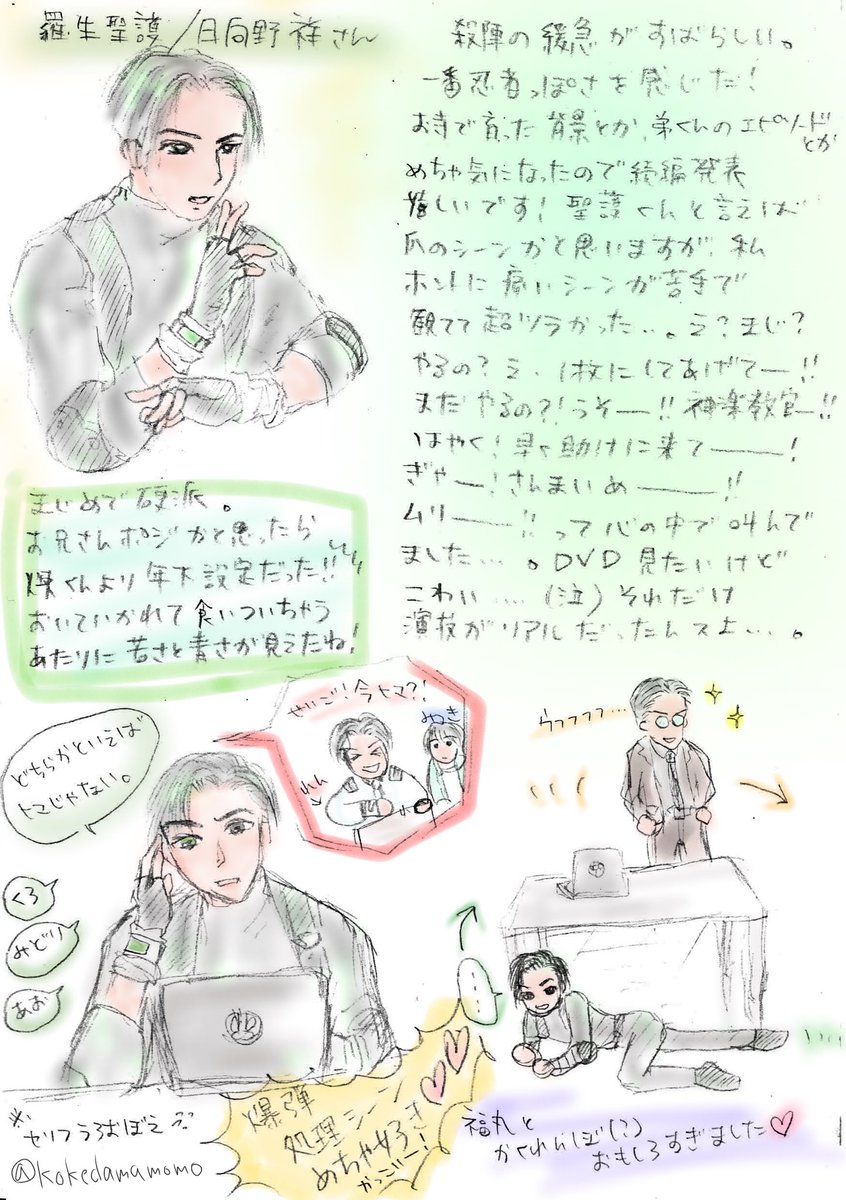 羅生聖護/日向野祥さん
殺陣の緩急がすばらしい。
一番忍者っぽさを感じた!
お寺で育った背景とか、弟くんのエピソードとか
めちゃ気になったので続編発表
嬉しいです!聖護くんと言えば
爪のシーンかと思いますが、私
ホントに痛いシーンが苦手で
観てて超ツラかった…。え?まじ?
やるの?え、1枚にしてあげてー!!
まだやるの?!うそー!!神楽教官ー!!
はやく!早く助けに来てー!
ぎゃー!さんまいめー!!
ムリー!!って心の中で叫んで
ました…。DVD見たいけど
こわい…(泣)それだけ
演技がリアルだったんスよ…。
まじめで硬派。
お兄さんポジかと思ったら
くんより年下設定だった!!
おいていかれて食いついちゃう
あたりに若さと青さが見えたね!
どちらかといえば
ヒマじゃない。
くろ
みどり
あお
せいご!今ヒマ?!
れん
ウフフフフ…
爆弾
処理シーン
めちゃ好き
かっごー!
福丸と
かくれんぼ(?)
おもしろすぎました
※セリフうろおぼえ
@kokedamamomo